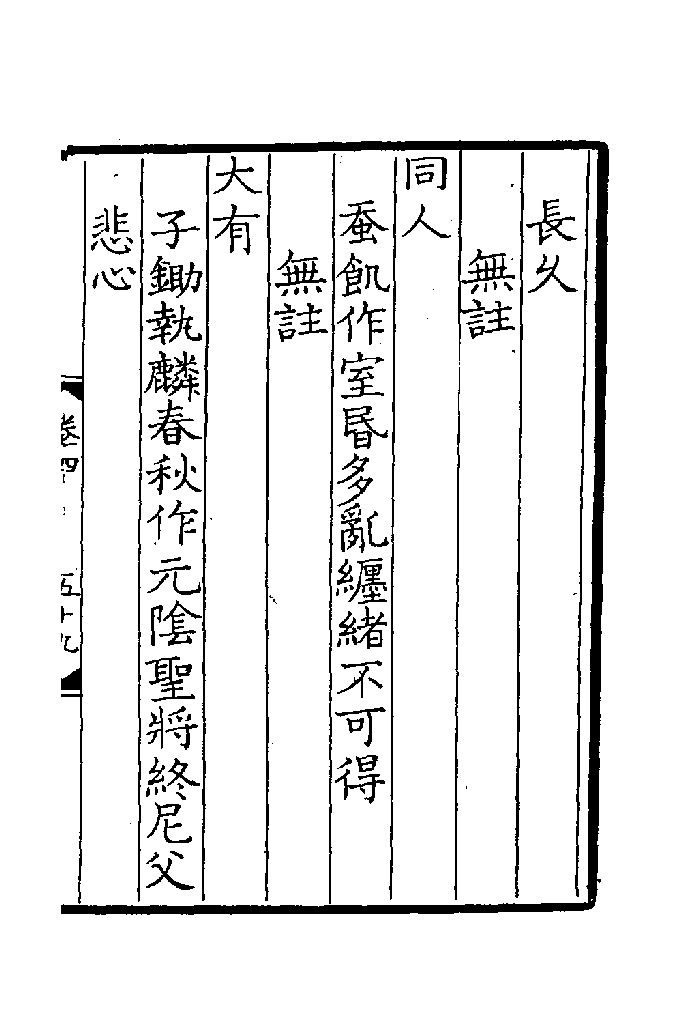 長久
無註
同人
蚕飢作室昬多亂纏緒不可得
無註
大有
子鋤執麟春秋作元陰聖將終尼父
悲心
卷四
五十九